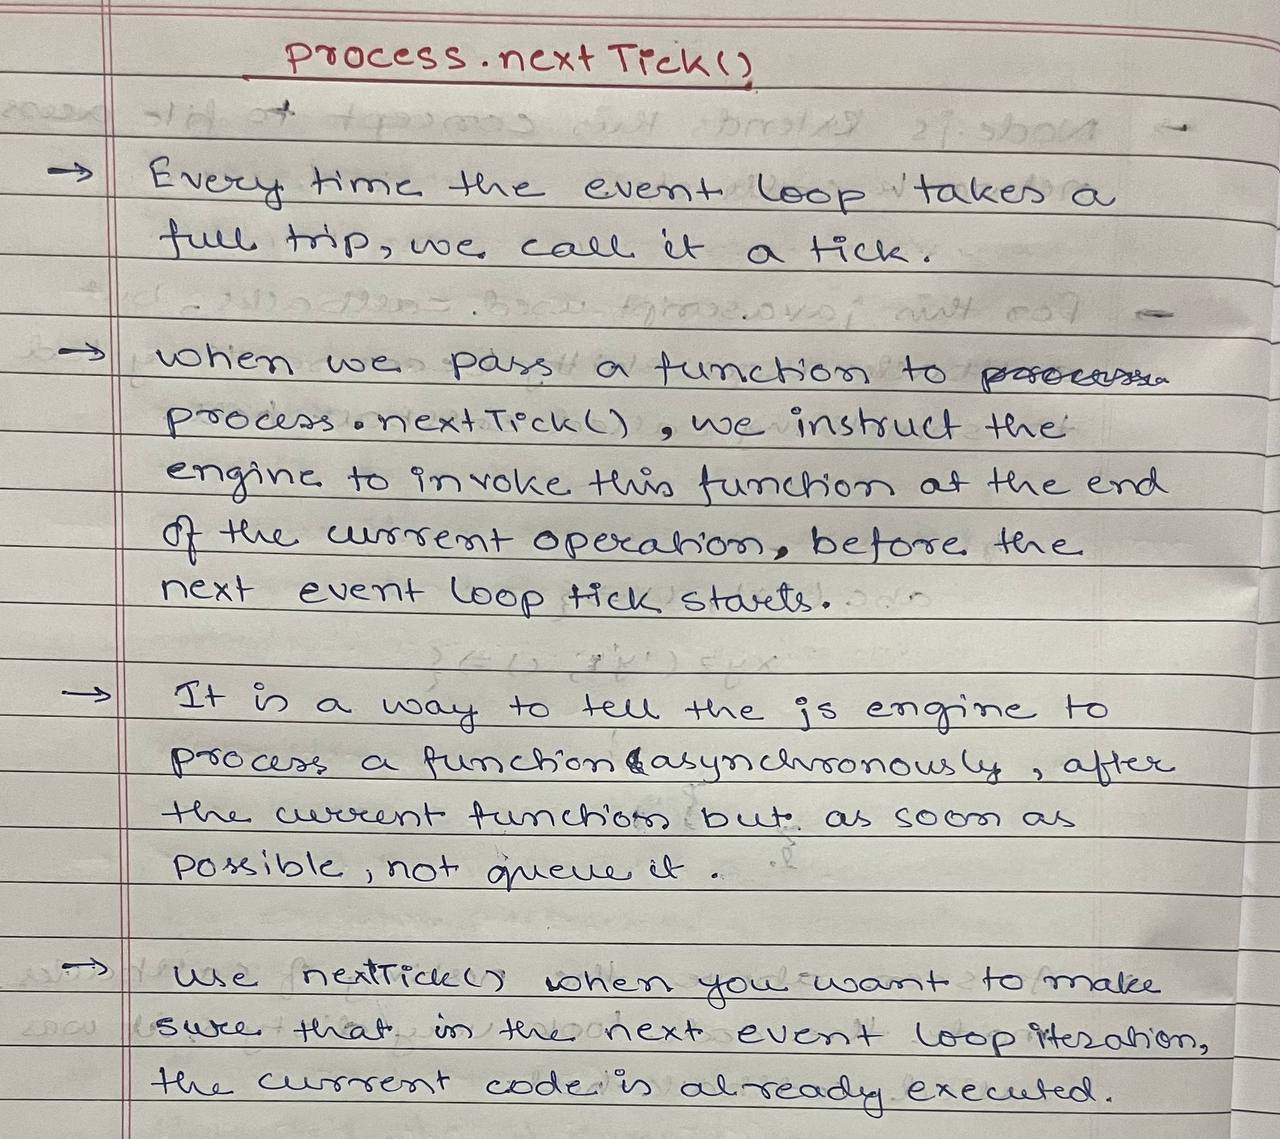 process.nextTick()
→ Every time the event loop takes a
full trip, we call it a tick.
→ when we pass a function to
process.nextTick(), we instruct the
engine to invoke this function at the end
of the current operation, before the
next event loop tick starts.
→ It is a way to tell the js engine to
process a function asynchronously, after
the current function but as soon as
possible, not queue it.
→ use nextTick() when you want to make
sure that in the next event loop iteration,
the current code is already executed.